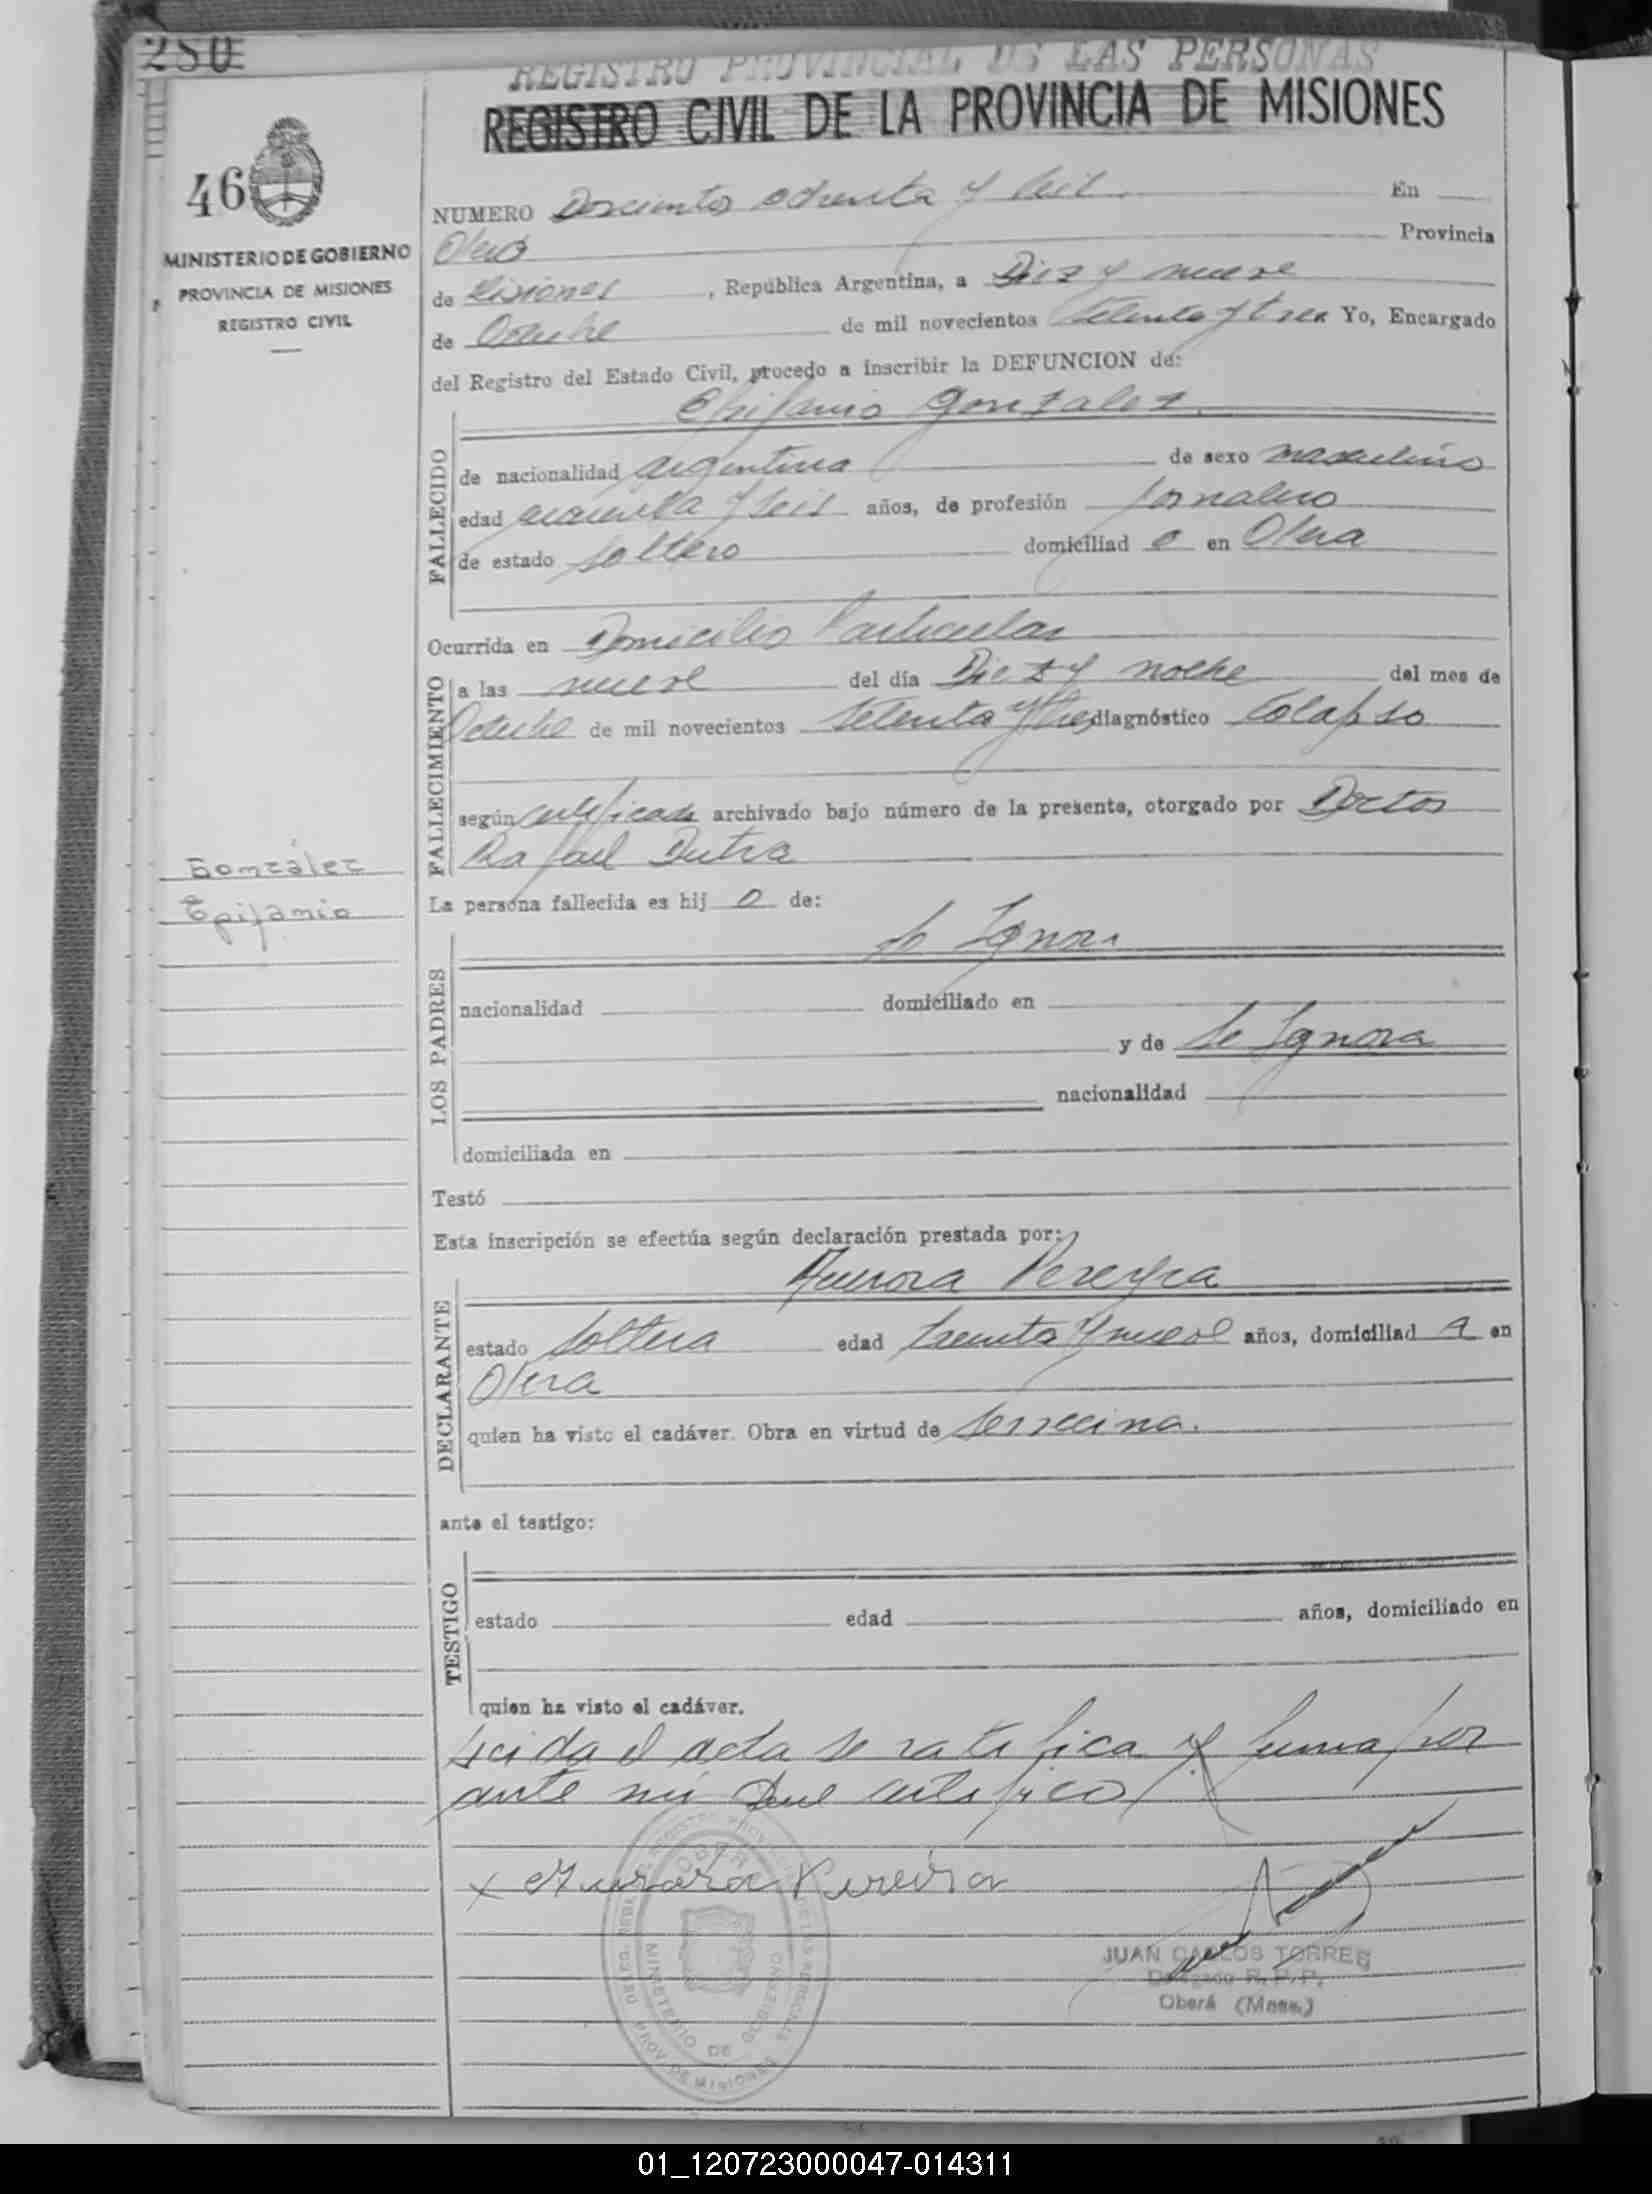 280
REGISTRO PROVINCIAL DE LAS PERSONAS
REGISTRO CIVIL DE LA PROVINCIA DE MISIONES
46
MINISTERIO DE GOBIERNO
PROVINCIA DE MISIONES
REGISTRO CIVIL
NUMERO Doscientos ochenta y seis En
Oberá Provincia
de Misiones, República Argentina, a Diez y nueve
de Octubre de mil novecientos setenta y tres Yo, Encargado
del Registro del Estado Civil, procedo a inscribir la DEFUNCION de:
Epifanio Gonzalez
FALLECIDO
de nacionalidad argentina de sexo masculino
edad cuarenta y seis años, de profesión Jornalero
de estado soltero domiciliad o en Obera
Ocurrida en Domicilio Particular
FALLECIMIENTO
a las nueve del día Diez y noche del mes de
Octubre de mil novecientos setenta y tres diagnóstico Colapso
según certificado archivado bajo número de la presente, otorgado por Doctor
Rafael Dutra
González
Epifanio
La persona fallecida es hij o de:
LOS PADRES
Se Ignora
nacionalidad domiciliado en
y de Se Ignora
nacionalidad
domiciliada en
Testó
Esta inscripción se efectúa según declaración prestada por:
DECLARANTE
Aurora Pereyra
estado soltera edad treinta y nueve años, domiciliad a en
Obera
quien ha visto el cadáver. Obra en virtud de ser vecina.
ante el testigo:
TESTIGO
estado edad años, domiciliado en
quien ha visto el cadáver.
Leida el acta se ratifica y firma por
ante mi que certifico
x Aurora Pereira
MINISTERIO DE GOBIERNO
PROV. DE MISIONES
JUAN CARLOS TORRES
Delegado R.P.P.
Oberá (Mnes.)
01_120723000047-014311